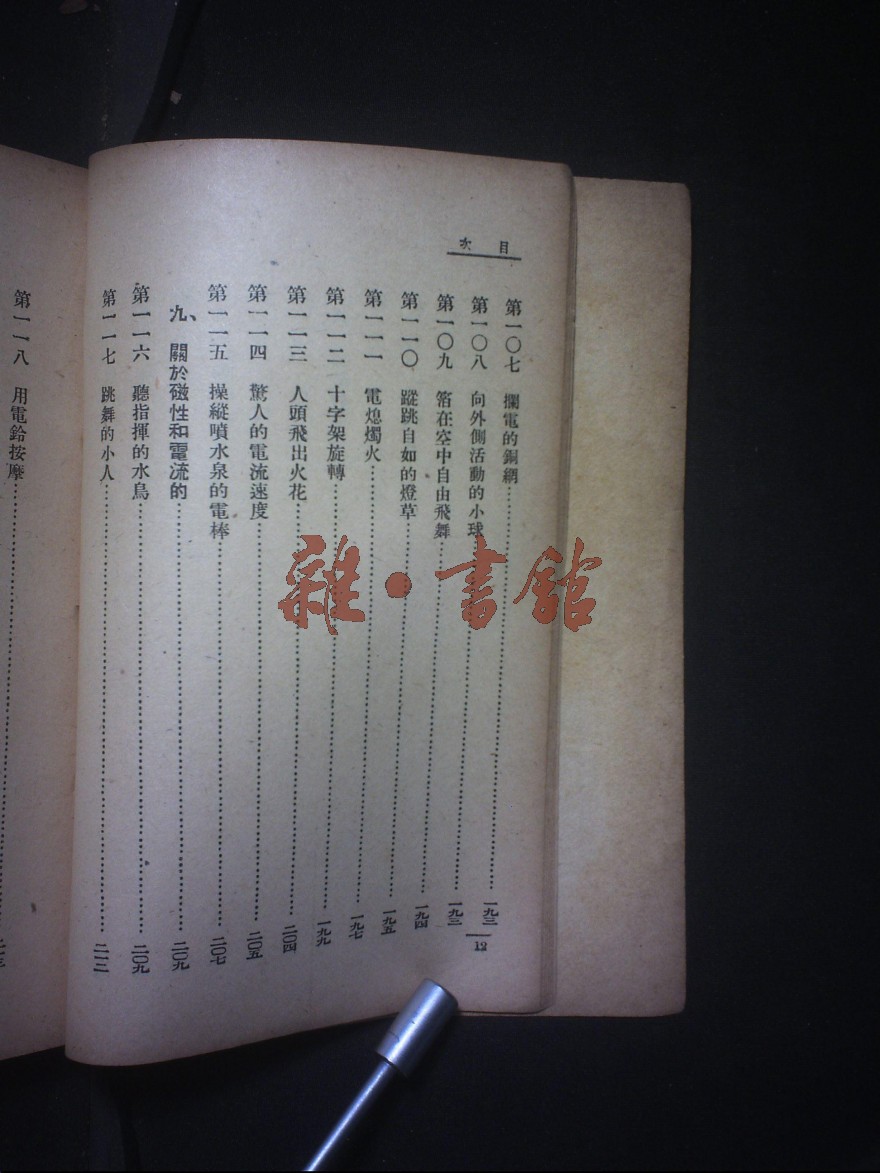 目次
第一〇七 攔電的銅網……一九三
第一〇八 向外側活動的小球……一九三
第一〇九 箔在空中自由飛舞……一九四
第一一〇 蹤跳自如的燈草……一九五
第一一一 電熄燭火……一九七
第一一二 十字架旋轉……一九九
第一一三 人頭飛出火花……二〇四
第一一四 驚人的電流速度……二〇五
第一一五 操縱噴水泉的電棒……二〇七
九、關於磁性和電流的……二〇九
第一一六 聽指揮的水鳥……二〇九
第一一七 跳舞的小人……二一三
12
第一一八 用電鈴按摩……
雜·書館